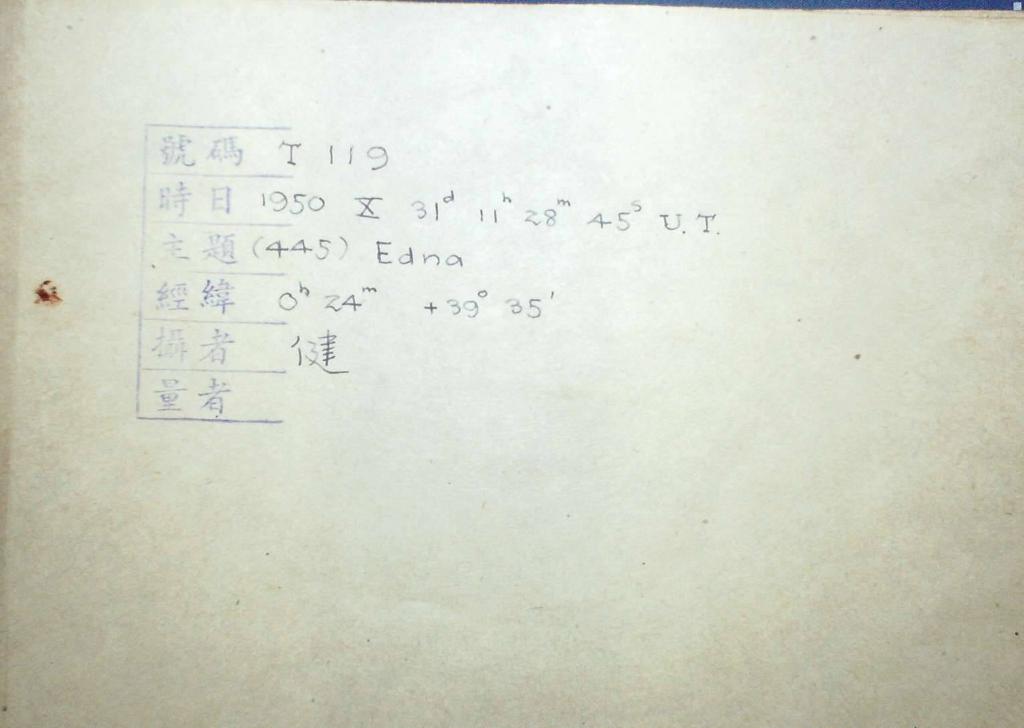 號碼 T 119
時日 1950 X 31ᵈ 11ʰ 28ᵐ 45ˢ U.T.
主題 (445) Edna
經緯 0ʰ 24ᵐ +39° 35'
攝者 健
量者